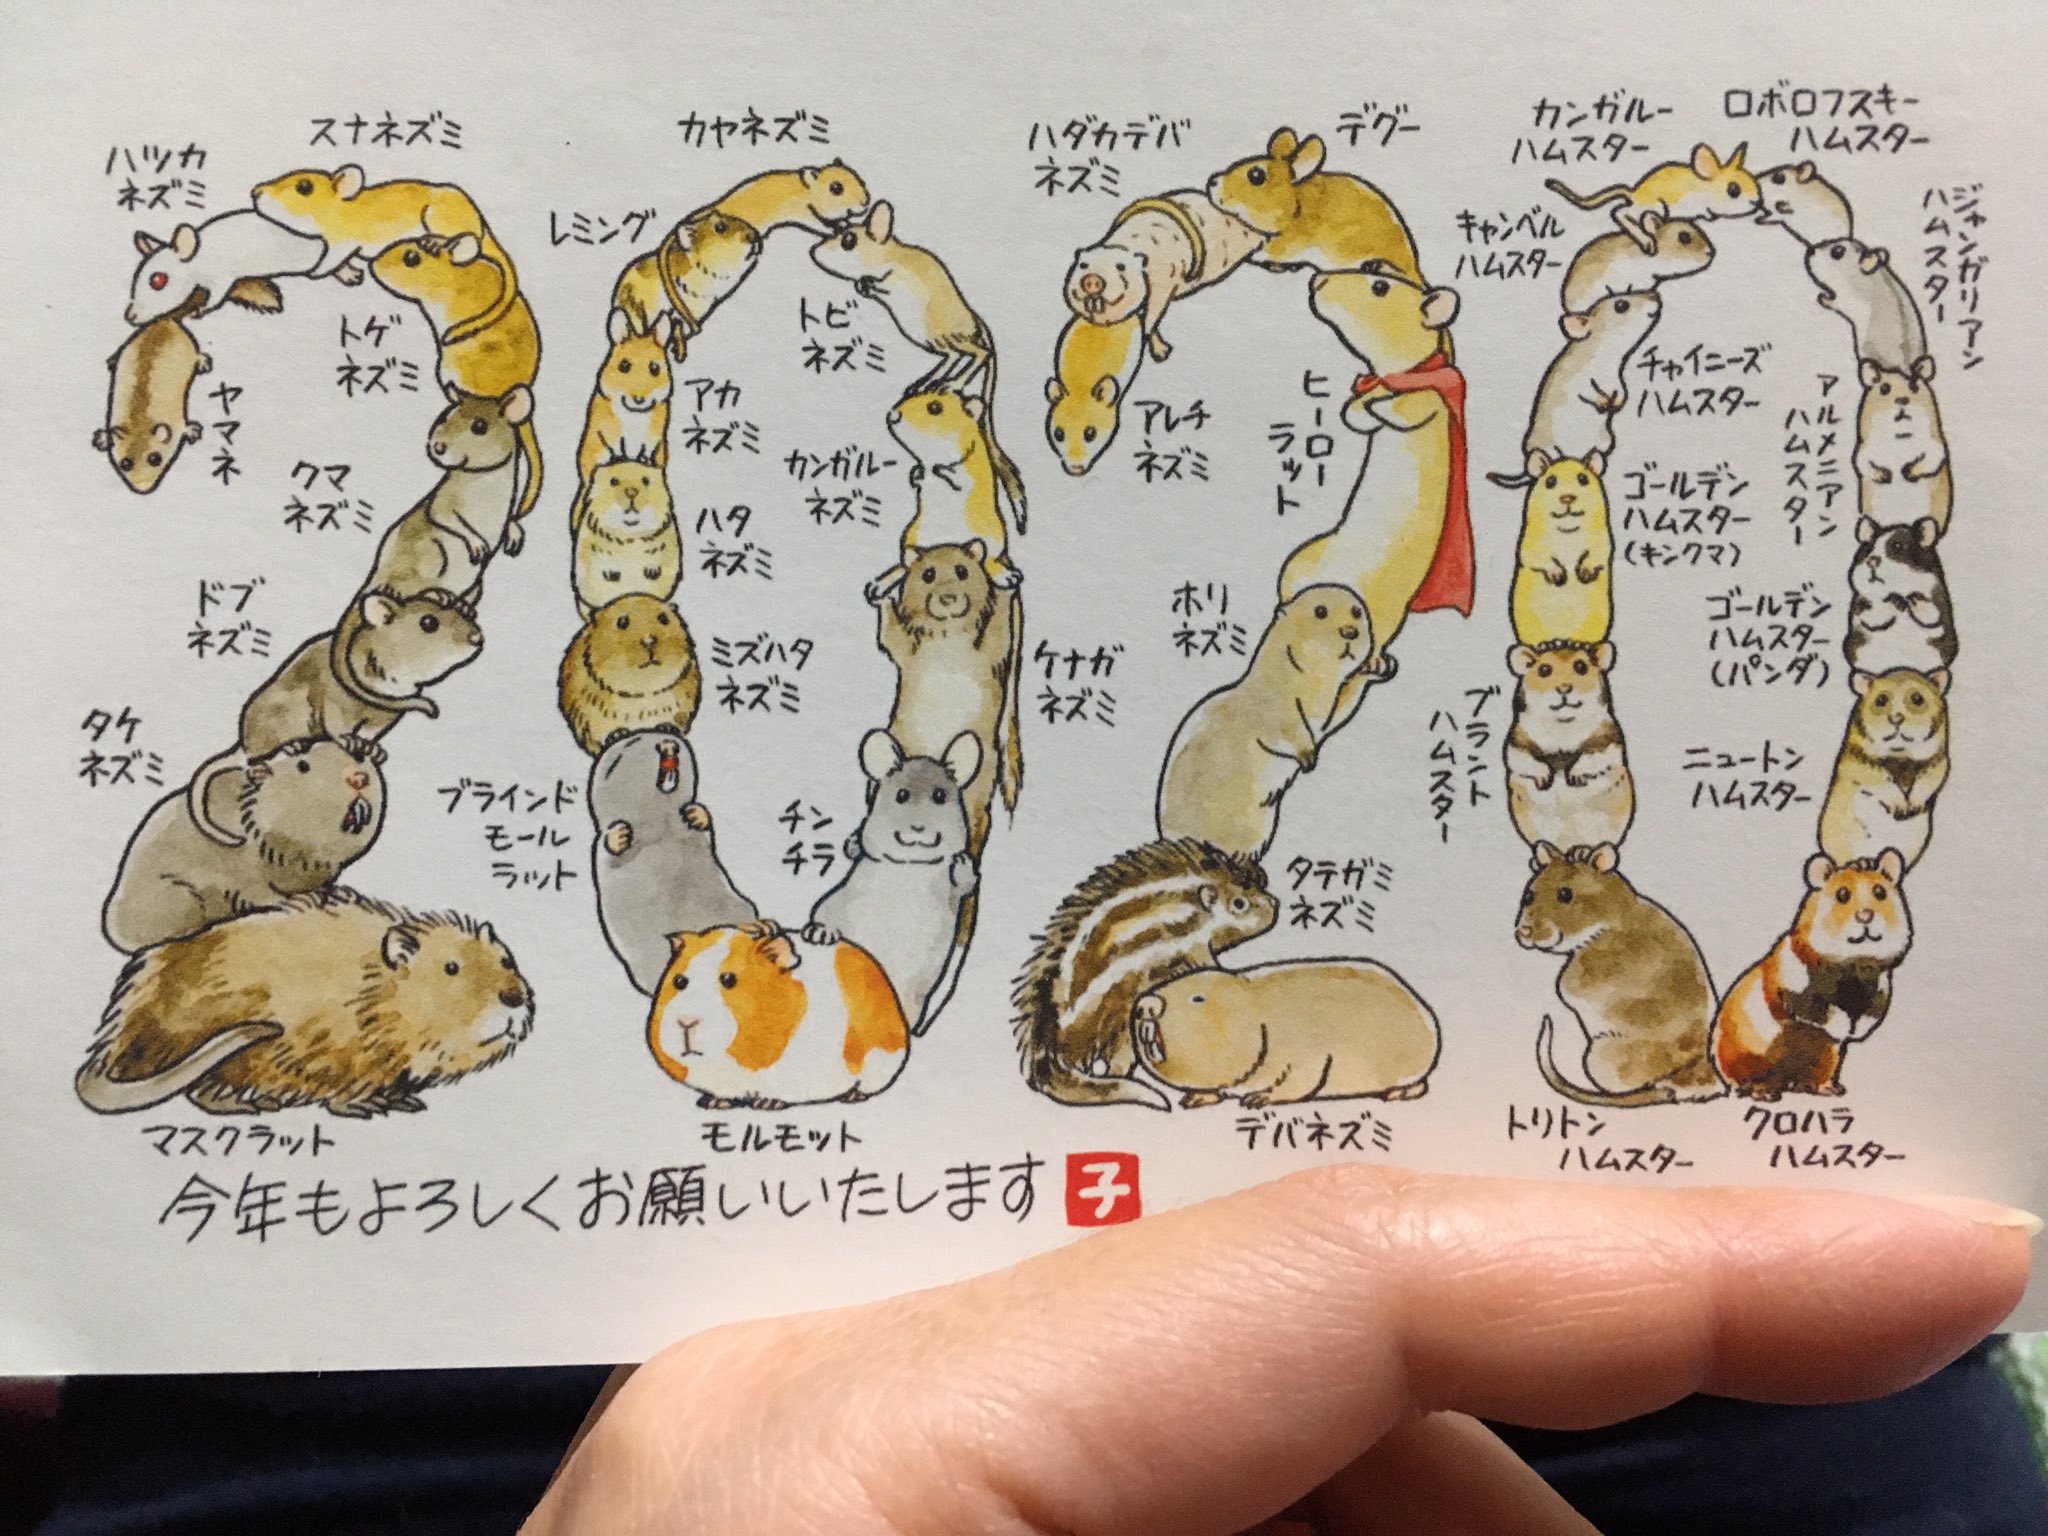 ハツカ
ネズミ
スナネズミ
トゲ
ネズミ
ヤマネ
クマ
ネズミ
ドブ
ネズミ
タケ
ネズミ
マスクラット
カヤネズミ
レミング
トビ
ネズミ
アカ
ネズミ
カンガルー
ネズミ
ハタ
ネズミ
ミズハタ
ネズミ
ケナガ
ネズミ
ブラインド
モール
ラット
チン
チラ
モルモット
ハダカデバ
ネズミ
デグー
アレチ
ネズミ
ヒーロー
ラット
ホリ
ネズミ
タテガミ
ネズミ
デバネズミ
カンガルー
ハムスター
ロボロフスキー
ハムスター
キャンベル
ハムスター
ジャンガリアン
ハムスター
チャイニーズ
ハムスター
アルメニアン
ハムスター
ゴールデン
ハムスター
(キンクマ)
ゴールデン
ハムスター
(パンダ)
ブラント
ハムスター
ニュートン
ハムスター
トリトン
ハムスター
クロハラ
ハムスター
今年もよろしくお願いいたします 子